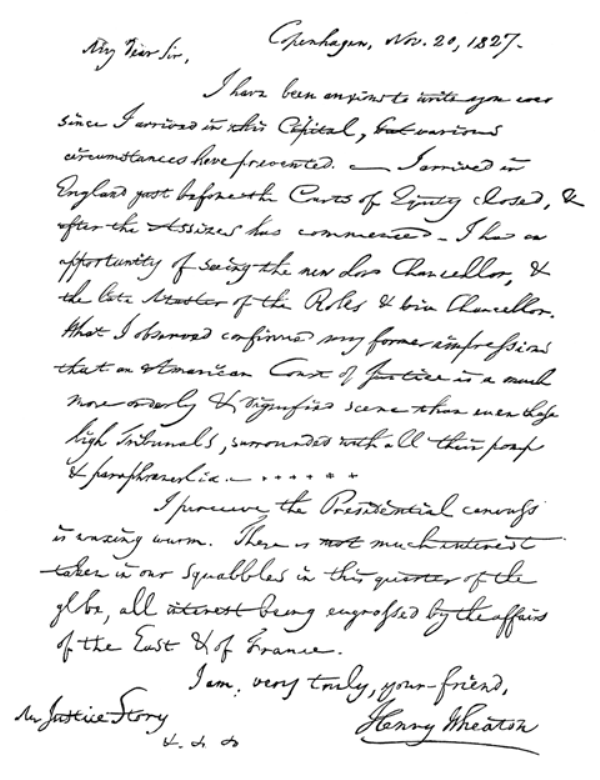 Copenhagen, Nov. 20, 1827.
My Dear Sir,
I have been anxious to write you ever
since I arrived in this Capital, but various
circumstances have prevented. — I arrived in
England just before the Courts of Equity closed, &
after the Assizes had commenced — I had an
opportunity of seeing the new Lord Chancellor, &
the late Master of the Rolls & Vice Chancellor.
What I observed confirmed my former impressions
that an American Court of Justice is a much
more orderly & dignified scene than even those
high Tribunals, surrounded with all their pomp
& paraphranelia. — + + + + + +
I perceive the Presidential canvass
is waxing warm. There is not much interest
taken in our squabbles in this quarter of the
globe, all interest being engrossed by the affairs
of the East & of France.
I am, very truly, your friend,
Mr Justice Story Henry Wheaton
&. &. &